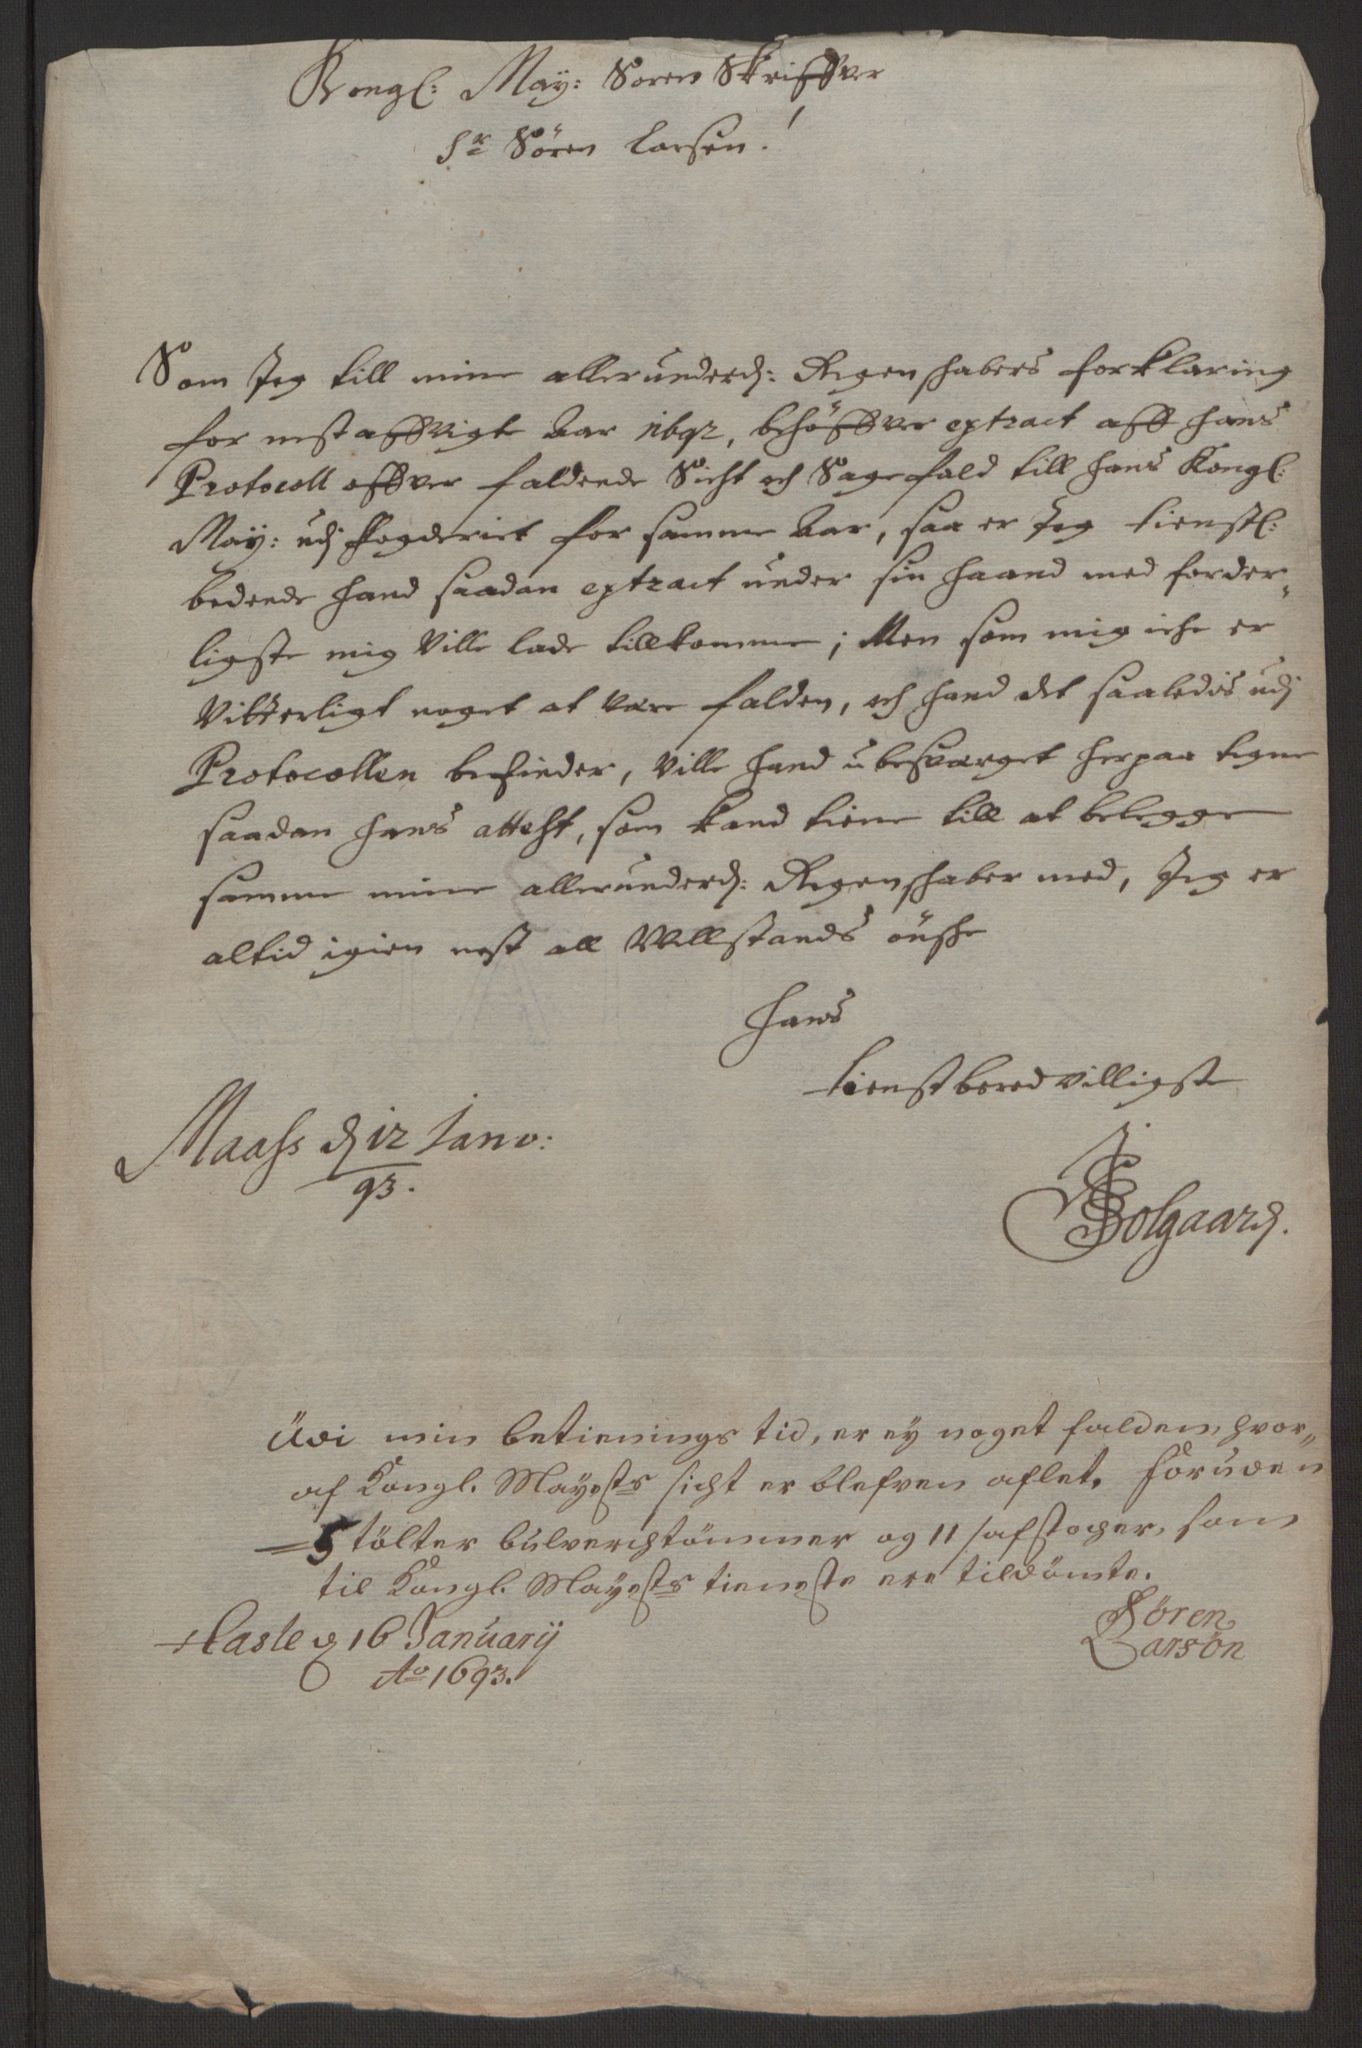 Kongl: May: Soren Skriffver
Sr Sören Larsen!
Som Jeg till mine allerunderd: Regenschabers forklaring
for nest affvigte Aar 1692, behöffver extract aff hans
Protocoll offver faldende Sicht och Sagefald till hans Kongl:
May: udj fogderiet for samme Aar, saa er Jeg tienstl:
bedende hand saadan extract under sin haand med forder-
ligste mig Ville lade tillkomme; Men som mig iche er
Vitterligt noget at være falden, och hand det saaledis udj
Protocollen befinder, Ville hand ubesværget herpaa tegne
saadan hans attest, som kand tiene till at belegge
samme mine allerunderd: Regenschaber med, Jeg er
altid igien nest all Vellstands önsche
Hans
tienstberedvilligste
Maass d 12 Janv:
93.
Solgaard.
Udi min betienings tid, er ey noget falden, hvor-
af Kongl. Mayests sicht er blefven aflet, foruden
5 tölter bulverchtömmer og 11 safstocher, som
til Kongl. Mayests tieneste ere tildömte.
Hasle d 16 Januarij
Ao 1693.
Sören
Larsön